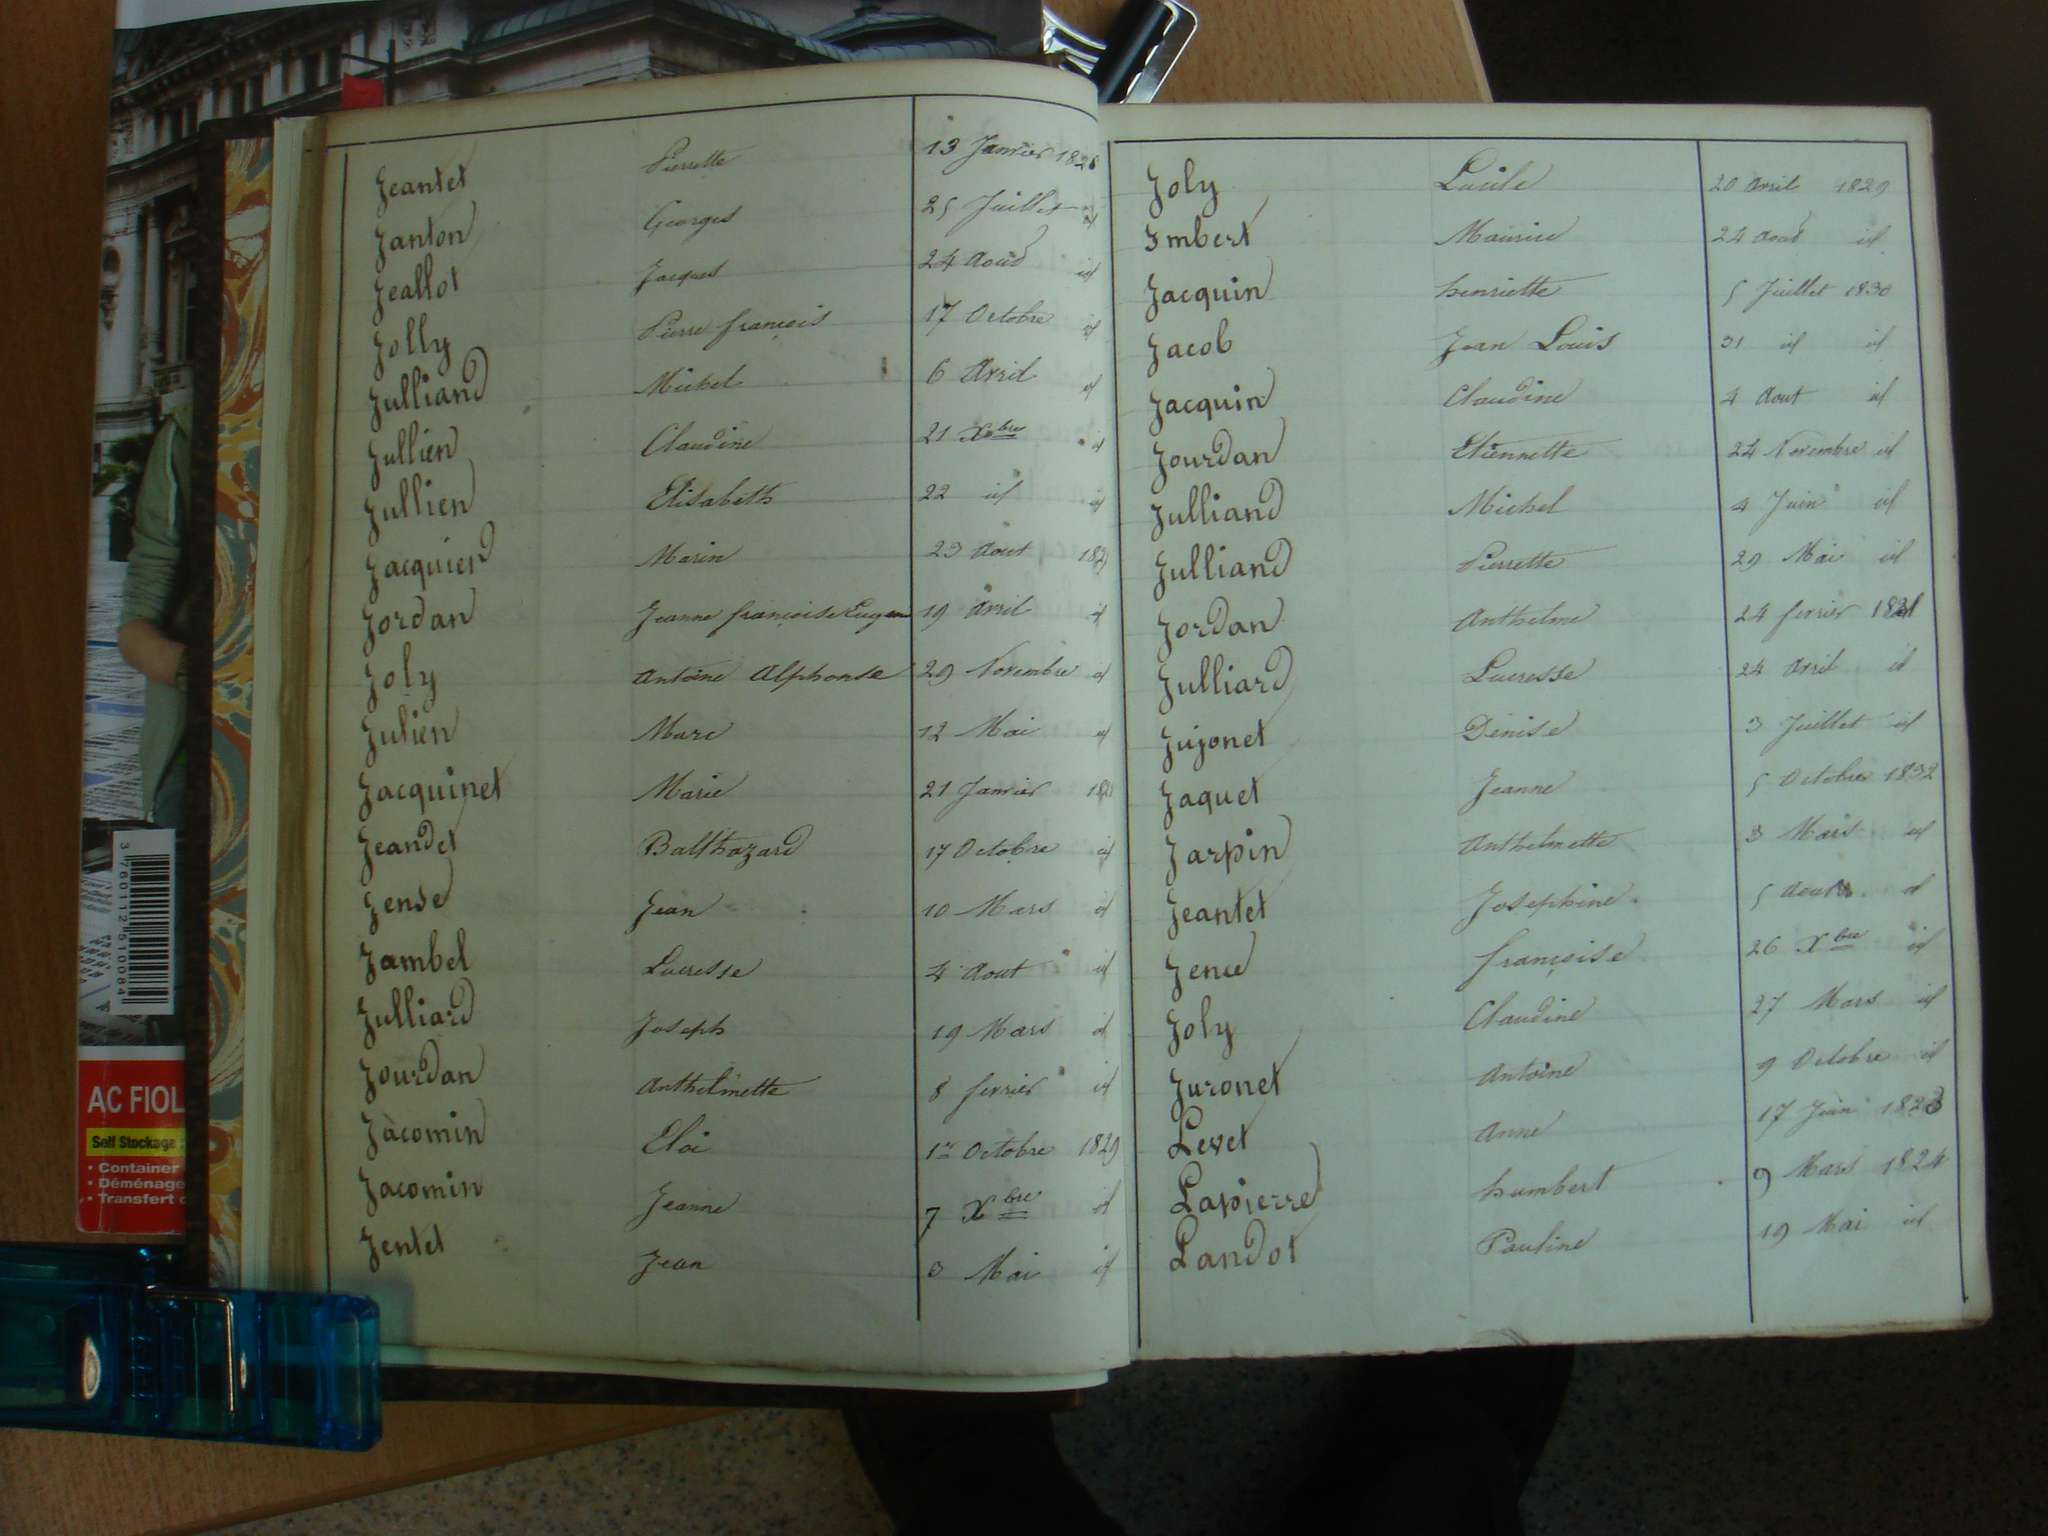 Jeantet Pierrette 13 Janvier
Janton Georges 25 Juillet id
Jeallot Jacques 24 Aout id
Jolly Pierre françois 17 Octobre id
Julliand Michel 6 Avril id
Jullien Claudine 21 Xbre id
Jullien Elisabeth 22 id id
Jacquier Marin 23 Aout
Jordan Jeanne françoise 19 Avril id
Joly Antoine Alphonse 29 Novembre id
Julien Marc 12 Mai id
Jacquinet Marie 21 Janvier
Jeandet Balthazard 17 Octobre id
Jense Jean 10 Mars id
Jambel Lucresse 4 Aout id
Julliard Joseph 19 Mars id
Jourdan Anthelmette 8 fevrier id
Jacomin Eloi 1er Octobre 1829
Jacomin Jeanne 7 Xbre id
Jentet Jean 3 Mai id
Joly Lucile 20 Avril 1829
Imbert Maurice 24 Aout id
Jacquin henriette 5 Juillet 1830
Jacob Jean Louis 31 id id
Jacquin Claudine 4 Aout id
Jourdan Etiennette 24 Novembre id
Julliand Michel 4 Juin id
Julliand Pierrette 29 Mai id
Jordan Anthelme 24 fevrier 1831
Julliard Lucresse 24 Avril id
Jujonet Denise 3 Juillet id
Jaquet Jeanne 5 Octobre 1832
Jarpin Anthelmette 3 Mars id
Jeantet Josephine 5 Aout id
Jence françoise 26 Xbre id
Joly Claudine 27 Mars id
Juronet Antoine 9 Octobre id
Levet Anne 17 Juin 1823
Lapierre humbert 9 Mars 1824
Landot Pauline 19 Mai id
3 760112 510084
AC FIOL
Self Stockage
• Container
• Déménage
• Transfert